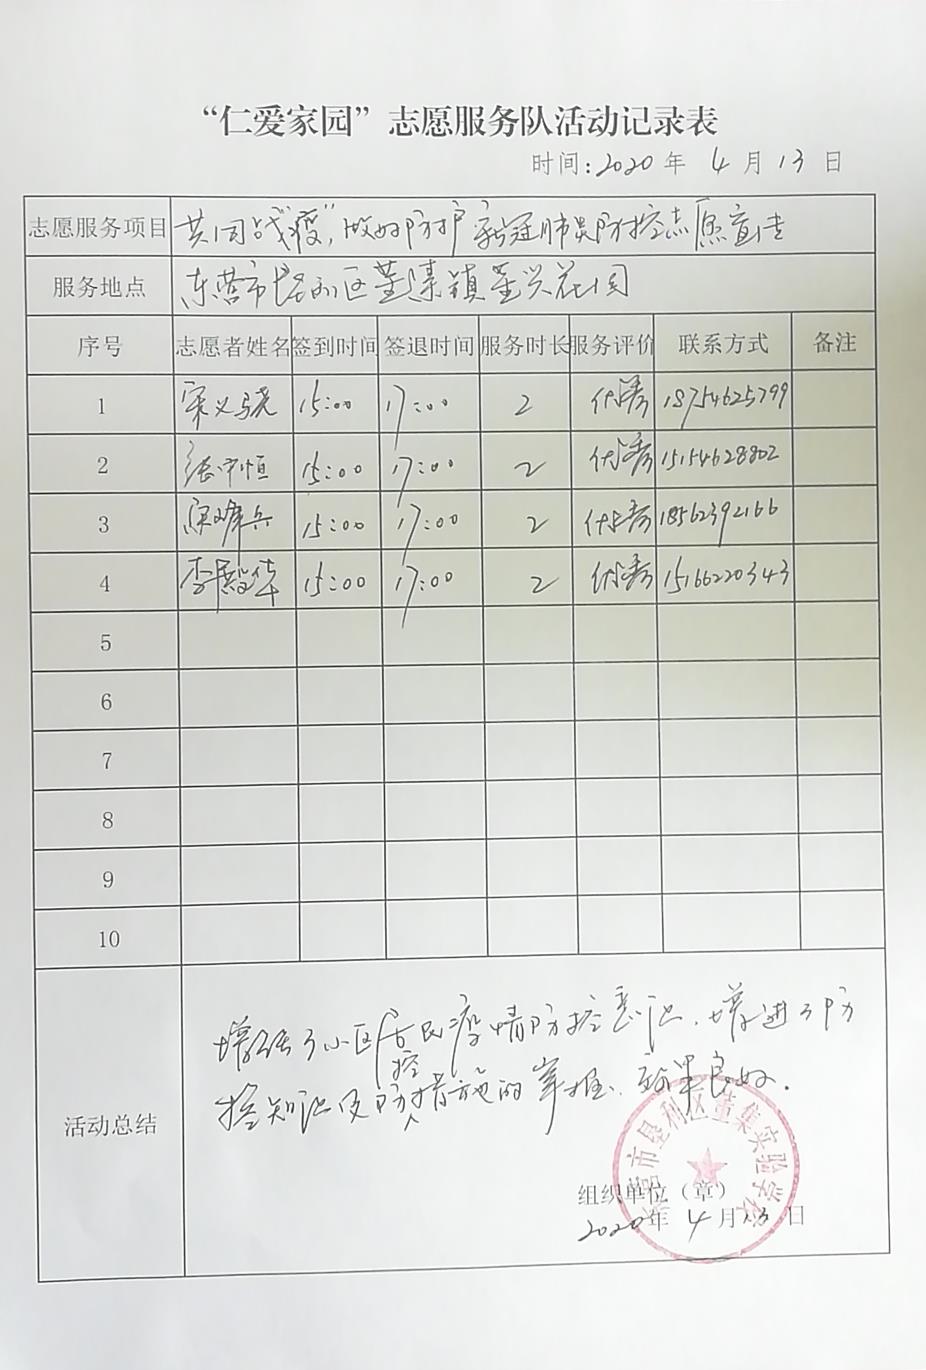 “仁爱家园”志愿服务队活动记录表
时间:2020年 4 月 13 日
志愿服务项目 共同战“疫”,做好防护 新冠肺炎防控志愿宣传
服务地点 东营市垦利区董集镇董兴花园
序号 志愿者姓名 签到时间 签退时间 服务时长 服务评价 联系方式 备注
1 宋义尧 15:00 17:00 2 优秀 18754625799
2 张守恒 15:00 17:00 2 优秀 15154628802
3 15:00 17:00 2 优秀 18562392166
4 李毅华 15:00 17:00 2 优秀 15166220343
5
6
7
8
9
10
活动总结
增强了小区居民疫情防控意识,增进了防
控知识及防控措施的掌握,效果良好.
组织单位(章)
2020年 4 月 13 日
东营市垦利区董集实验学校